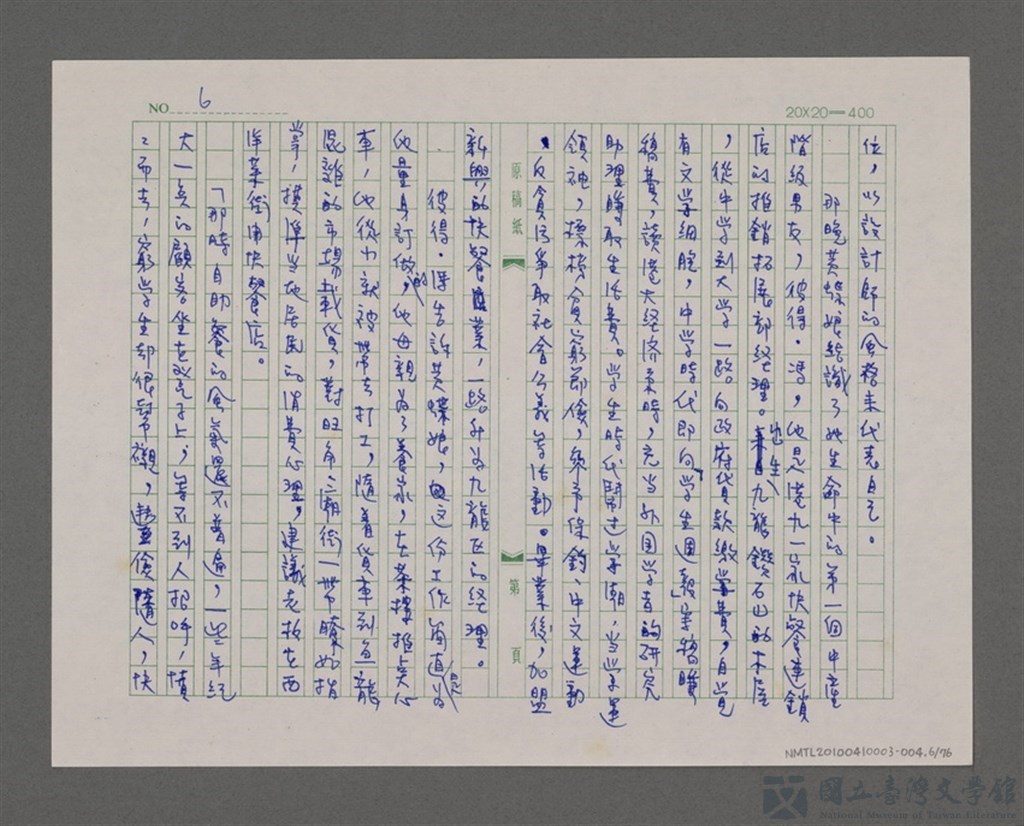 NO 6
20X20=400
位，以設計師的風格来代表自己。
那晚黃蝶娘結識了她生命中的第一個中產
階級男友，彼得·馮，他是港九一家快餐連鎖
店的推銷拓展部經理。出生九龍鑽石山的木屋
，從中学到大学一路向政府貸款繳学費，自覺
有文学細胞，中学時代即向「学生週報」寫稿賺
稿費，讀港大經济系時，充当外国学者的研究
助理賺取生活費。学生時代鬧过学潮，当学運
領袖，標榜貧窮節儉，参予保釣、中文運動
、反貪污爭取社會公義等活動。畢業後，加盟
原稿紙
第 頁
新興的快餐業，一路升为九龍区的經理。
彼得·馮告訴黃蝶娘，這份工作簡直是为
他量身訂做的，他母親为了養家，在茶樓推点心
車，他從小就被带去打工，隨着貨車到魚龍
混雜的市場載貨，對旺角、廟街一带瞭如指
掌，摸準当地居民的消費心理，建議老板在西
洋菜街開快餐店。
「那時自助餐的風氣還不普遍，一些年紀
大一点的顧客坐在凳子上，等不到人招呼，憤
憤而去，窮学生却很幫襯，豐儉隨人，快
NMTL20100410003-004.6/76
國立臺灣文學館
National Museum of Taiwan Literature